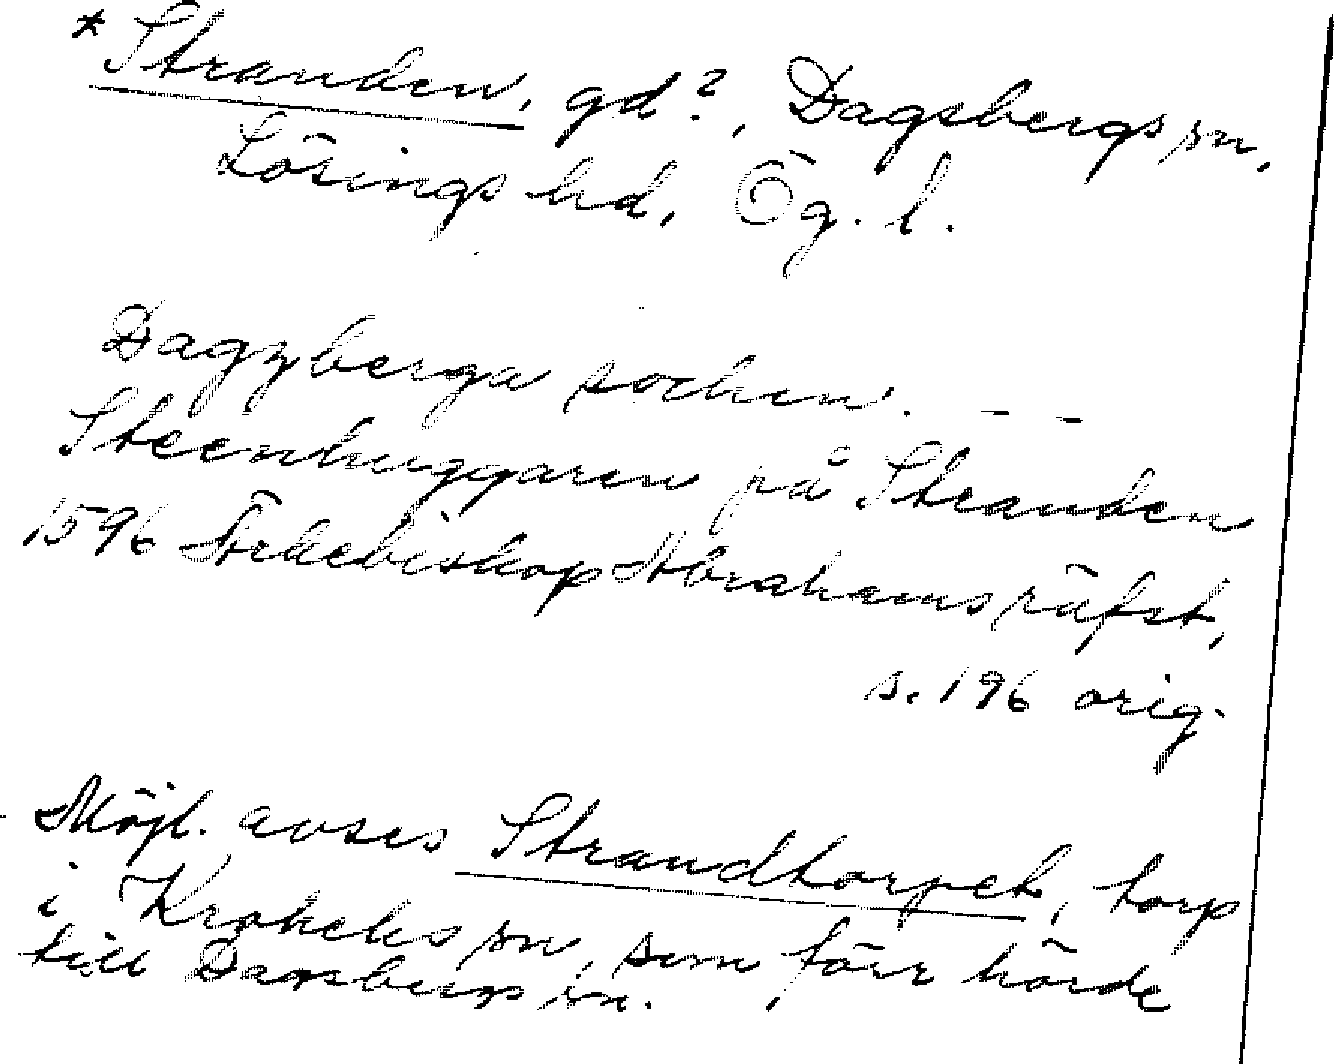 *Stranden, gd?, Dagsbergs sn,
Lösings hd, Ög. l.
Dagzberga sochen. - -
Steenhuggaren på Stranden
1596 Ärkebiskop Abrahams räfst,
s. 196 orig.
Möjl. avses Strandtorpet, torp
i Krokeks sn, som förr hörde
till Dagsbergs sn.